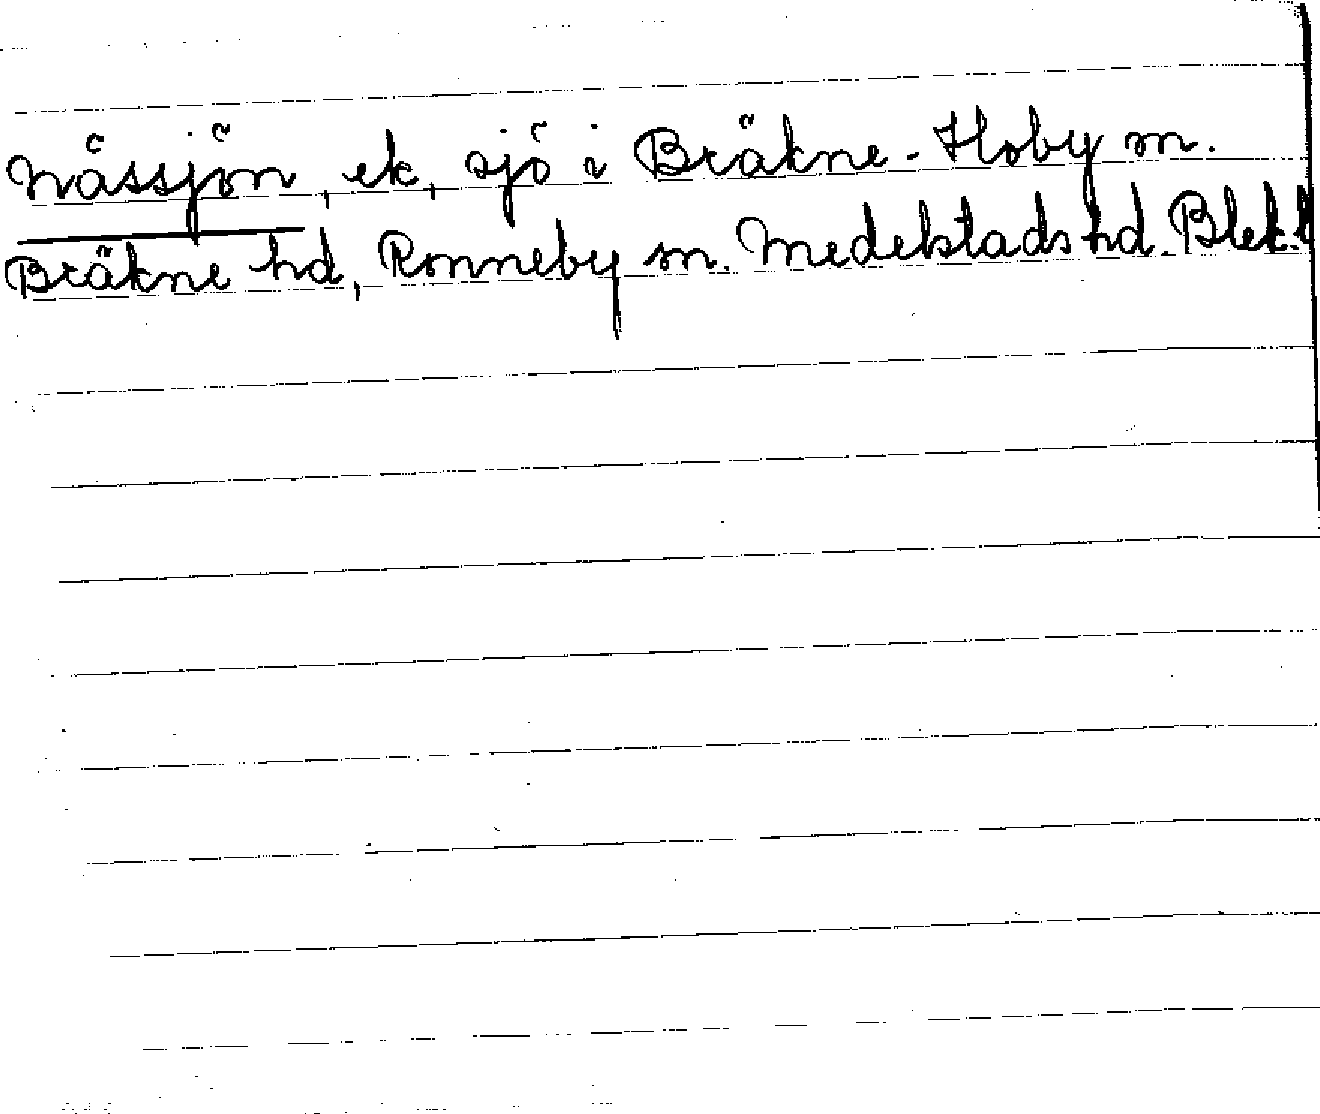 Nässjön, ek, sjö i Bräkne-Hoby sn.
Bräkne hd, Ronneby sn. Medelstads hd. Blek.l